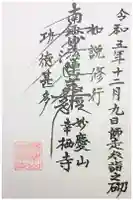 令和五年十二月九日節
参詣之砌
如説修行
南無妙法蓮華経
妙慶山
幸栖寺
功徳甚多